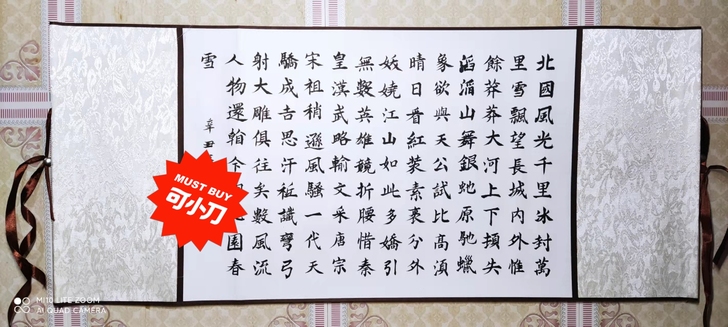 北國風光千里冰封萬
里雪飄望長城內外惟
餘莽莽大河上下頓失
滔滔山舞銀蛇原馳蠟
象欲與天公試比高須
晴日看紅裝素裹分外
妖嬈江山如此多嬌引
無數英雄競折腰惜秦
皇漢武略輸文采唐宗
宋祖稍遜風騷一代天
驕成吉思汗祗識彎弓
射大雕俱往矣數風流
人物還今園春
雪
辛丑
MUST BUY
可小刀
MI 10 LITE ZOOM
AI QUAD CAMERA